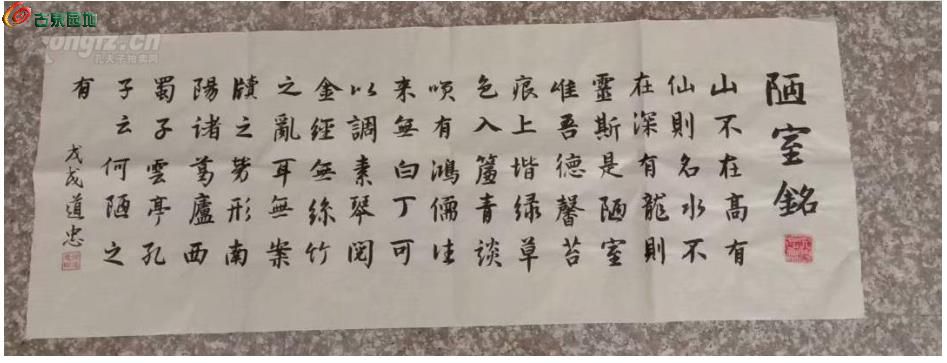 古泉园地
ongfz.cn
孔夫子拍卖网
陋室銘
山不在高有
仙則名水不
在深有龍則
靈斯是陋室
唯吾德馨苔
痕上堦绿草
色入簾青談
咲有鴻儒往
来無白丁可
以調素琴閱
金經無絲竹
之亂耳無案
牍之劳形南
陽诸葛廬西
蜀子雲亭孔
子云何陋之
有
戊戌道忠